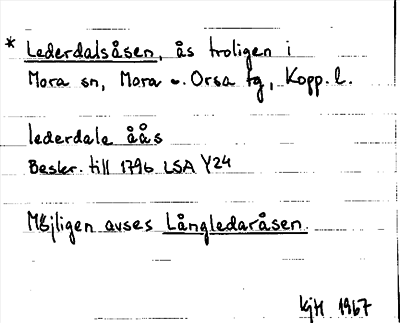 * Lederdalsåsen, ås troligen i
Mora sn, Mora o. Orsa tg, Kopp. l.
lederdale åås
Beskr. till 1796 LSA Y24
Möjligen avses Långledaråsen.
KjH 1967